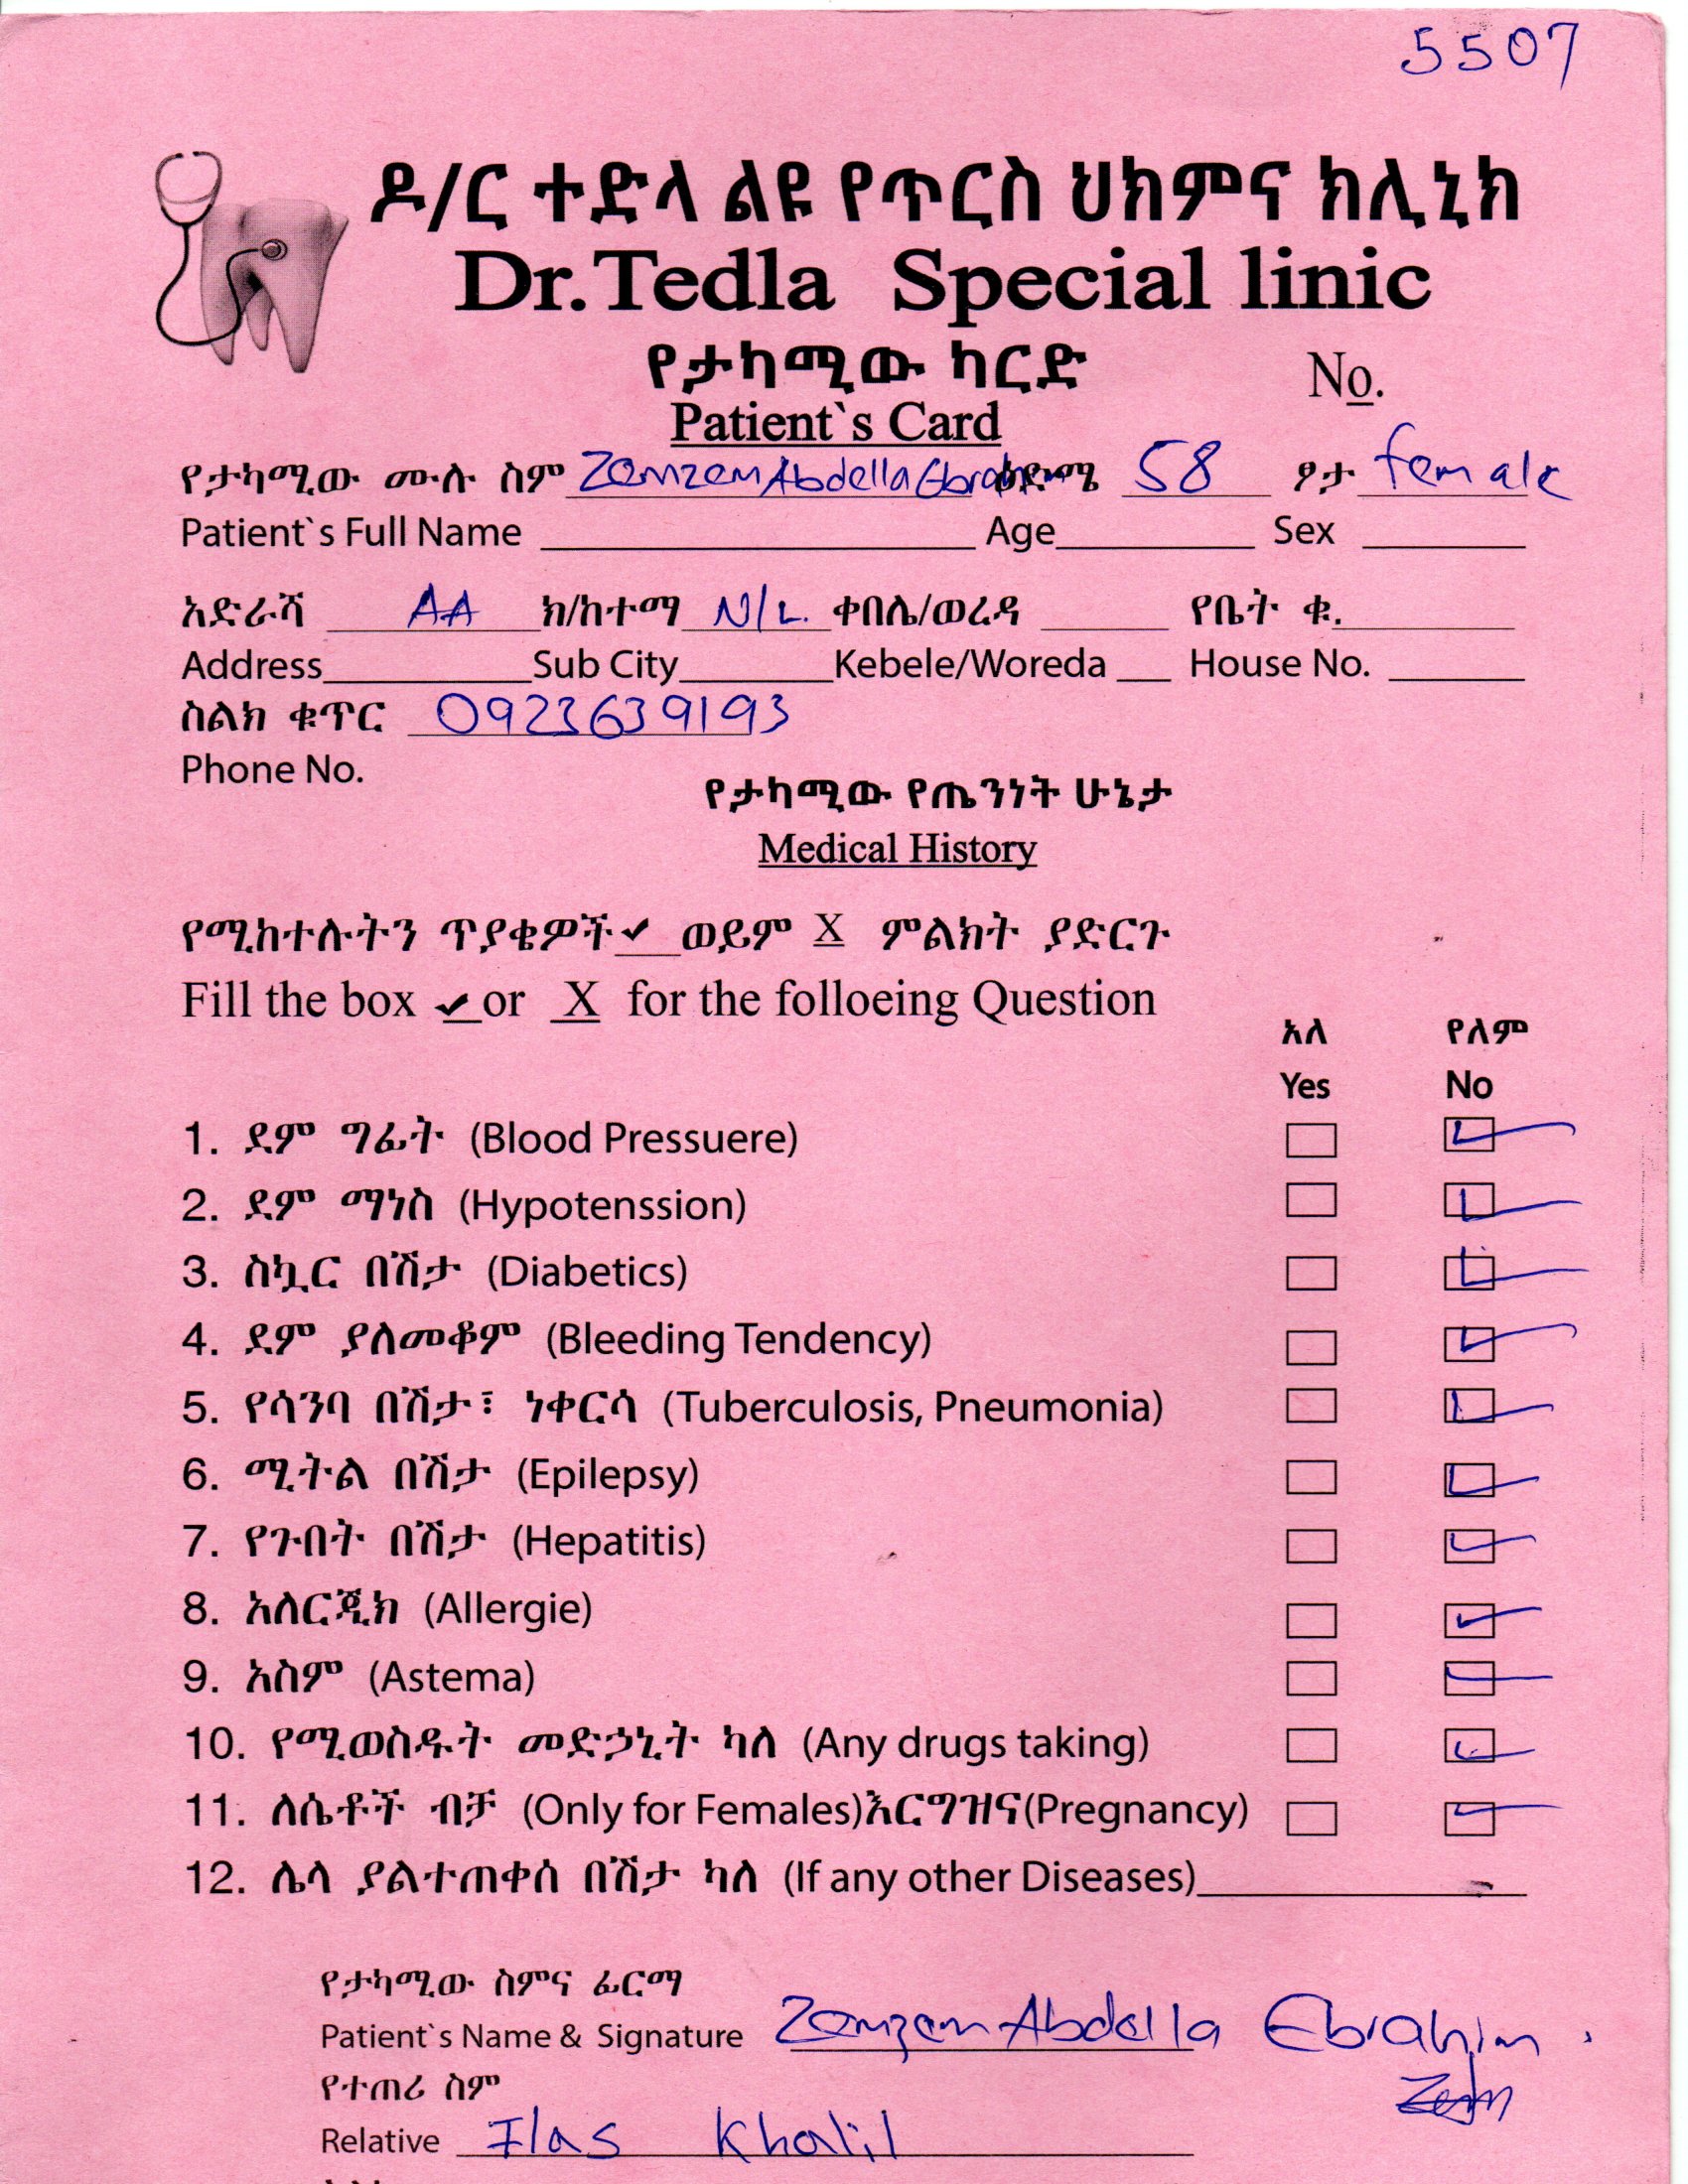 5507
ዶ/ር ተድላ ልዩ የጥርስ ህክምና ክሊኒክ
Dr.Tedla Special linic
የታካሚው ካርድ
No.
Patient`s Card
የታካሚው ሙሉ ስም Zemzem Abdella Ebrahim ዕድሜ 58 ፆታ female
Patient`s Full Name Age Sex
አድራሻ AA ክ/ከተማ N/L. ቀበሌ/ወረዳ የቤት ቁ.
Address Sub City Kebele/Woreda House No.
ስልክ ቁጥር 0923639193
Phone No.
የታካሚው የጤንነት ሁኔታ
Medical History
የሚከተሉትን ጥያቄዎች ✔ ወይም X ምልክት ያድርጉ
Fill the box ✔ or X for the folloeing Question
አለ የለም
Yes No
1. ደም ግፊት (Blood Pressuere)
2. ደም ማነስ (Hypotenssion)
3. ስኳር በሽታ (Diabetics)
4. ደም ያለመቆም (Bleeding Tendency)
5. የሳንባ በሽታ፣ ነቀርሳ (Tuberculosis, Pneumonia)
6. ሚትል በሽታ (Epilepsy)
7. የጉበት በሽታ (Hepatitis)
8. አለርጂክ (Allergie)
9. አስም (Astema)
10. የሚወስዱት መድኃኒት ካለ (Any drugs taking)
11. ለሴቶች ብቻ (Only for Females)እርግዝና(Pregnancy)
12. ሌላ ያልተጠቀሰ በሽታ ካለ (If any other Diseases)
የታካሚው ስምና ፊርማ
Patient`s Name & Signature Zemzem Abdella Ebrahim
የተጠሪ ስም
Relative Ilas Khalil